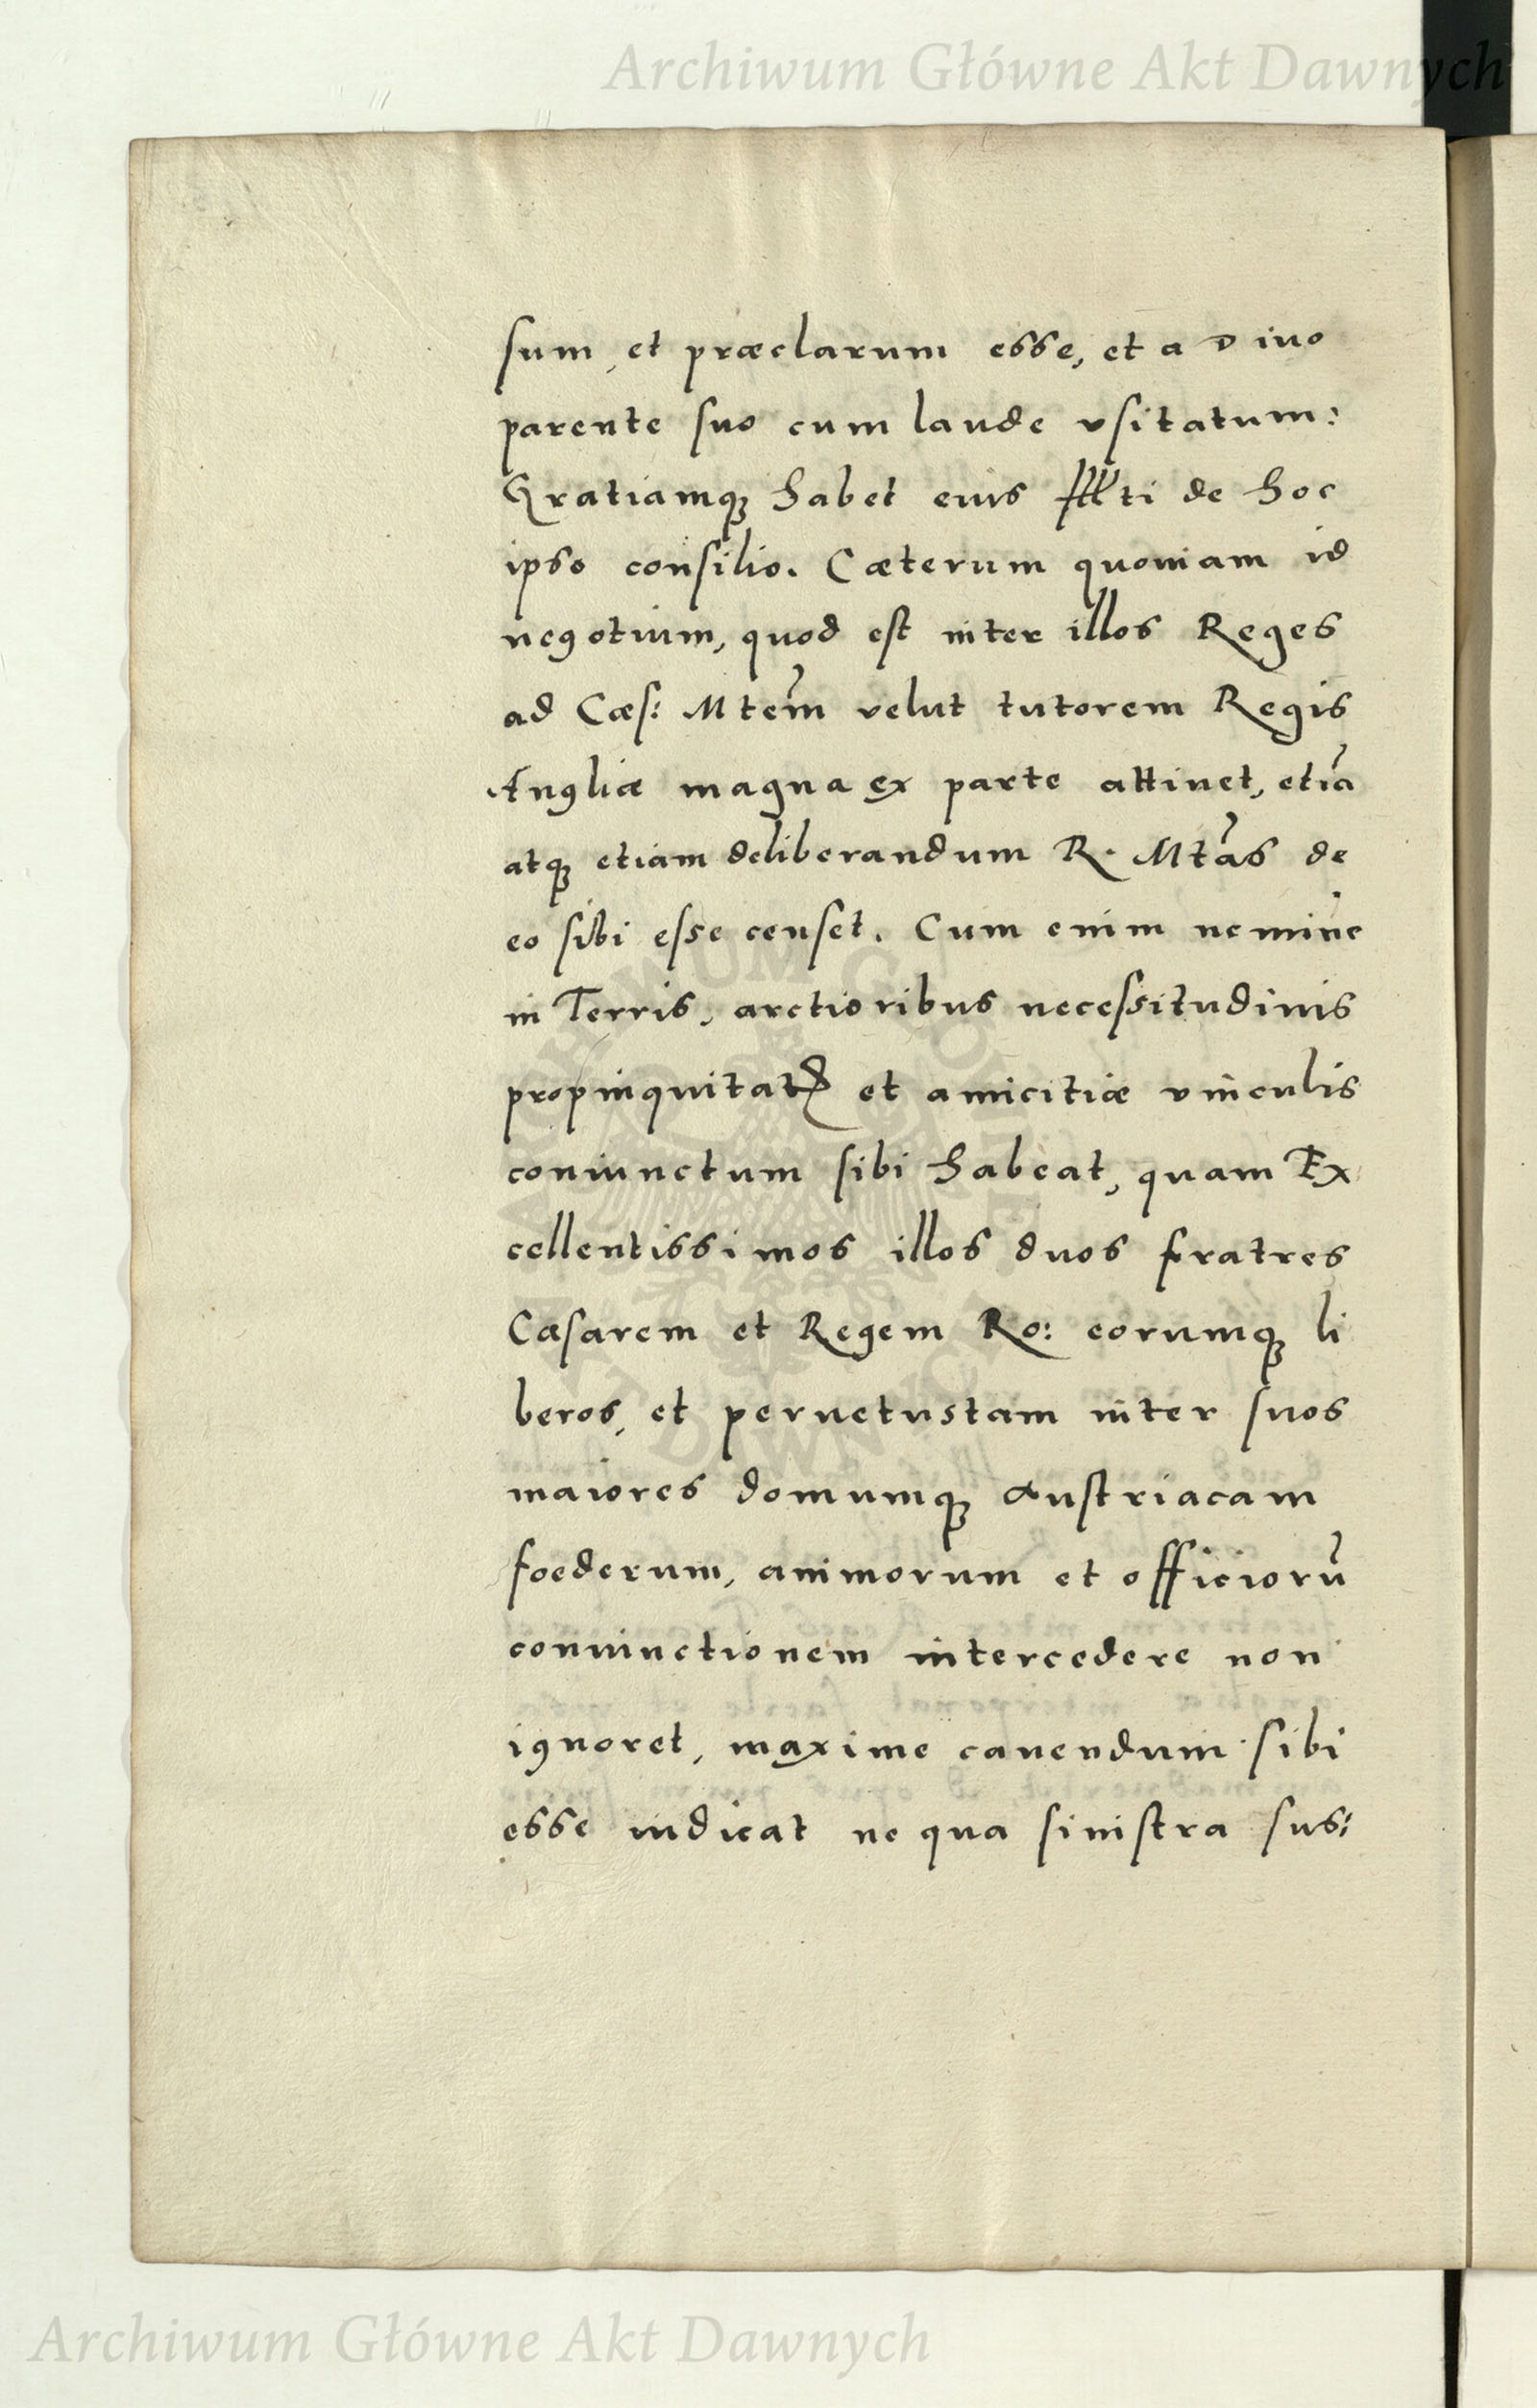 Archiwum Główne Akt Dawnych
sum, et præclarum esse, et a Divo
parente suo cum laude vsitatum:
Gratiamq habet eius Illti de hoc
ipso consilio. Cæterum quoniam id
negotium, quod est inter illos Reges
ad Cæs: Mtem velut tutorem Regis
Angliæ magna ex parte attinet, etiã
atq etiam deliberandum R. Mtas de
eo sibi esse censet. Cum enim nemine
in Terris, arctioribus necessitudinis
propinquitatis et amicitiæ vinculis
coniunctum sibi habeat, quam Ex
cellentissimos illos duos fratres
Cæsarem et Regem Ro: eorumq li
beros, et peruetustam inter suos
maiores domumq Austriacam
foederum, animorum et officiorũ
coniunctionem intercedere non
ignoret, maxime cauendum sibi
esse iudicat ne qua sinistra sus:
Archiwum Główne Akt Dawnych